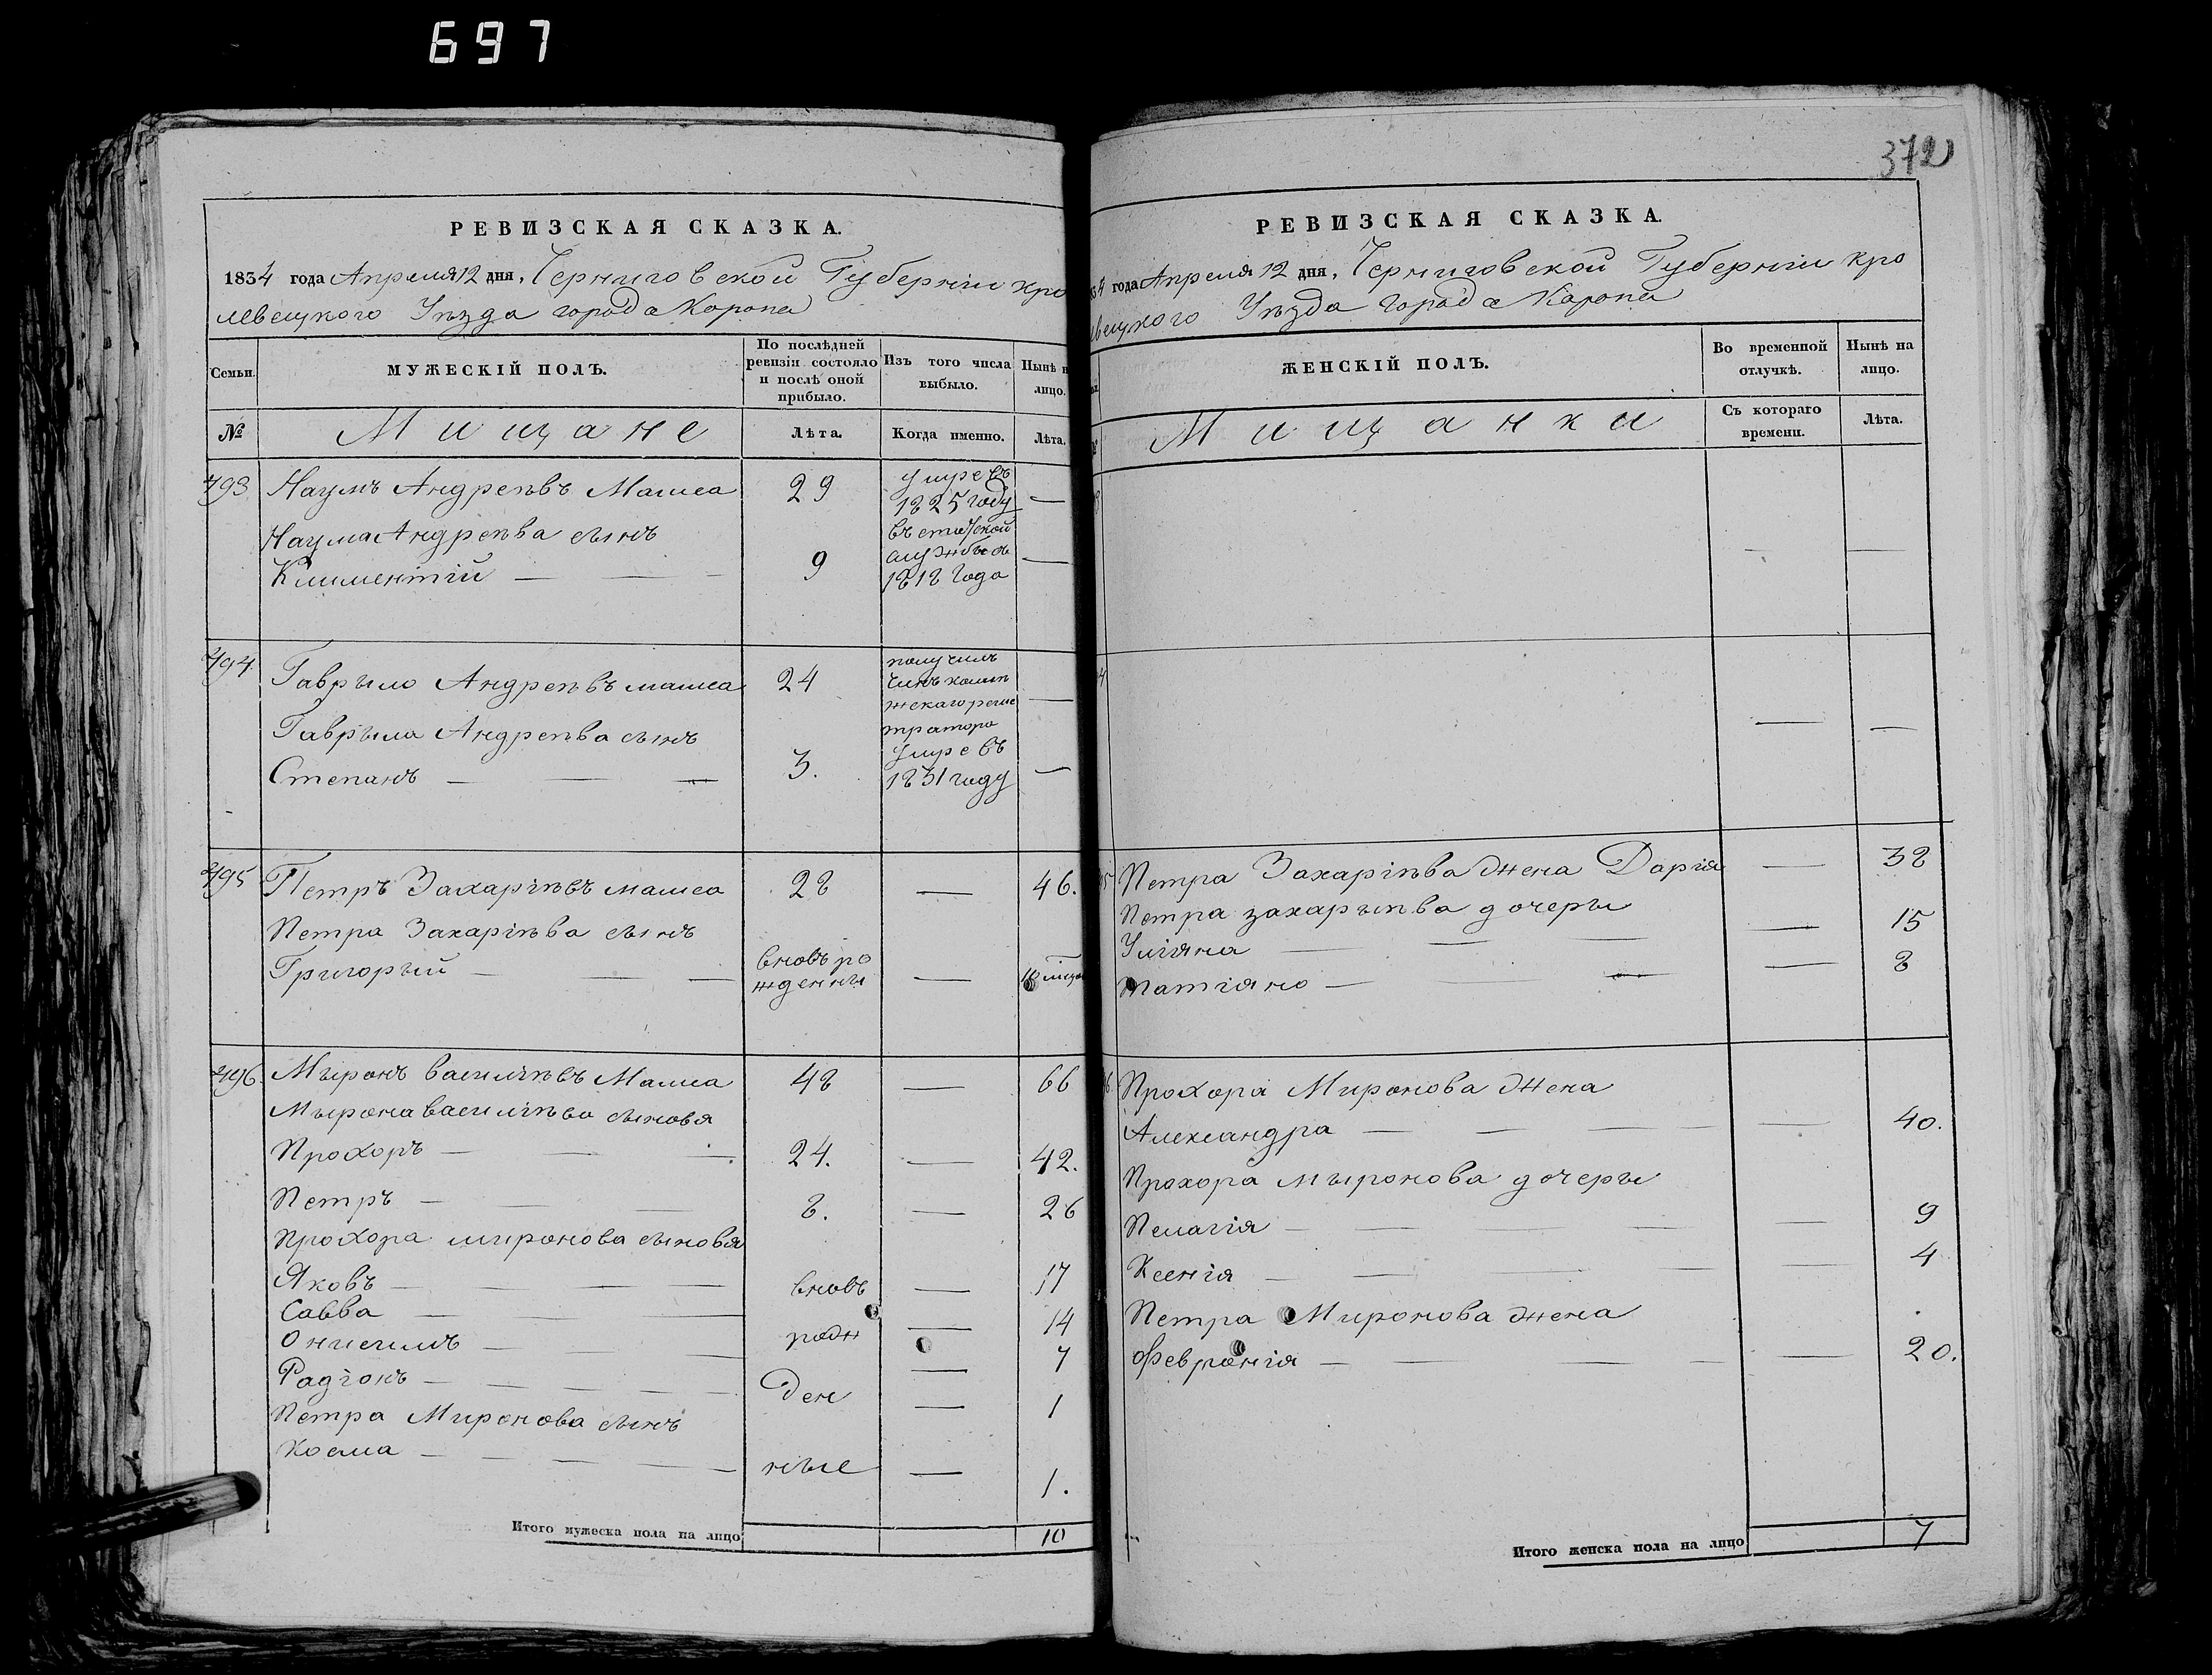 697
372
РЕВИЗСКАЯ СКАЗКА.
1834 года Апреля 12 дня, Черниговской Губерніи кро
левецкого Уѣзда города Коропа
Семьи.
МУЖЕСКІЙ ПОЛЪ.
По послѣдней
ревизіи состояло
и послѣ оной
прибыло.
Изъ того числа
выбыло.
Нынѣ н
лицо.
№
Мищане
Лѣта.
Когда именно.
Лѣта.
493 Наумъ Андреевъ 29 умре въ
1825 году —
Наума Андреева сынъ
Климентій — 9
1818 года —
494 Гаврыло Андреевъ 24 получилъ
чинъ
Гаврыла Андреева сынъ
Степанъ — 3. умре въ
1831 году —
495 Петръ Захаріевъ 28 — 46.
Петра Захаріева сынъ
Григорый — вновь ро
жденны —
496 Мыронъ Василіевъ 48 — 66
Мырона Василіева сыновя
Прохоръ — 24. — 42.
Петръ — 8. — 26
Прохора Миронова сыновя
Яковъ — вновь — 17
Савва — 14
Онисимъ — рожн — 7
Радіонъ — ден — 1
Петра Миронова сынъ
Косма — ные — 1.
Итого мужеска пола на лицо 10
РЕВИЗСКАЯ СКАЗКА.
34 года Апреля 12 дня, Черниговской Губерніи кро
вецкого Уѣзда города Коропа
ЖЕНСКІЙ ПОЛЪ.
Во временной
отлучкѣ.
Нынѣ на
лицо.
Мищанки
Съ котораго
времени.
Лѣта.
Петра Захаріева жена Дарія — 38
Петра Захарыева дочеры
Уліяна — 15
Татіяна — 8
Прохора Миронова жена
Александра — 40.
Прохора Мыронова дочеры
Пелагія — 9
Ксенія — 4
Петра Миронова жена
Февронія — 20.
Итого женска пола на лицо 7